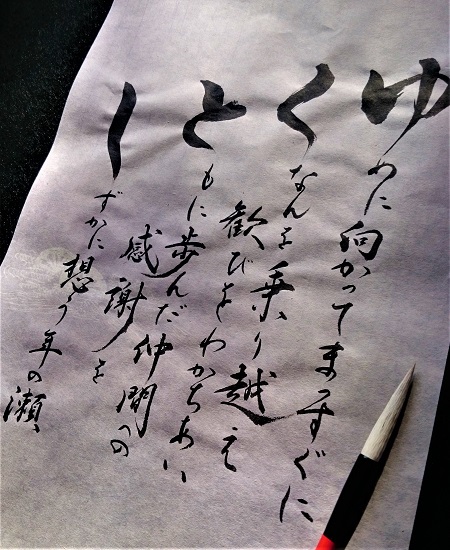 ゆめに向かってまっすぐに
くなんを乗り越え
歓びをわかちあい
ともに歩んだ仲間への
感謝を
しずかに想う年の瀬